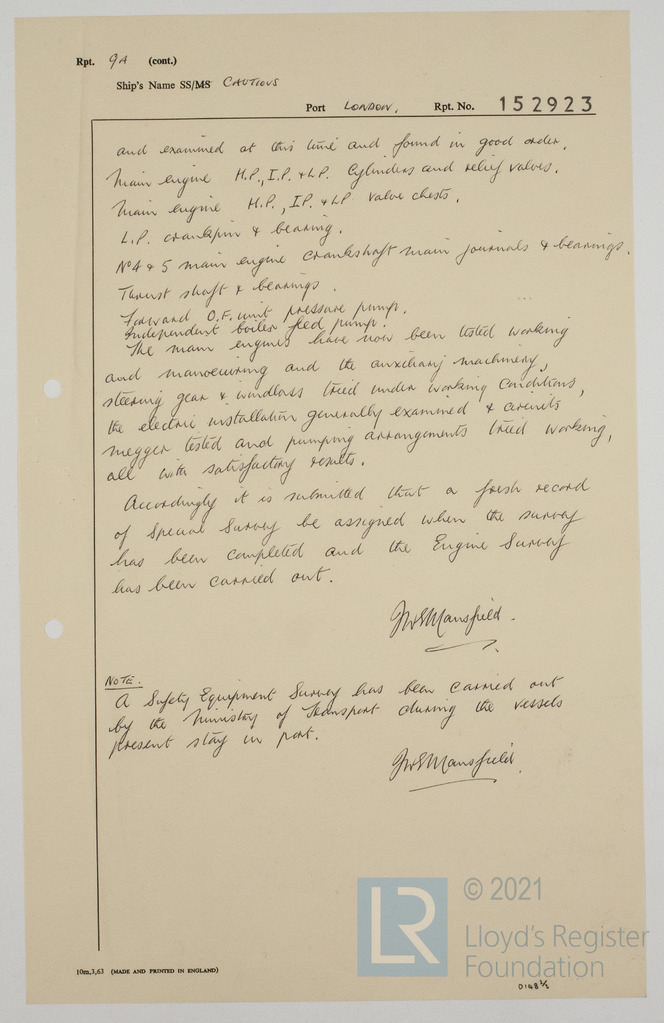 Rpt. 9A (cont.)
Ship's Name SS/MS CAUTIOUS
Port LONDON, Rpt. No. 152923
and examined at this time and found in good order.
Main engine H.P., I.P. & L.P. Cylinders and relief valves.
Main engine H.P., I.P. & LP valve chests.
L.P. crankpin & bearing.
Nº4 & 5 main engine crankshaft main journals & bearings.
Thrust shaft & bearings.
Forward O.F. unit pressure pump.
Independent boiler feed pump.
The main engines have now been tested working
and manoeuvring and the auxiliary machinery,
steering gear & windlass tried under working conditions,
the electric installation generally examined & circuits
megger tested and pumping arrangements tried working,
all with satisfactory results.
Accordingly it is submitted that a fresh record
of Special Survey be assigned when the survey
has been completed and the Engine Survey
has been carried out.
JWSMansfield.
NOTE.
A Safety Equipment Survey has been carried out
by the Ministry of Transport during the vessels
present stay in port.
JWSMansfield.
10m,3,63 (MADE AND PRINTED IN ENGLAND)
LR
© 2021
Lloyd's Register
Foundation
0148 2/2